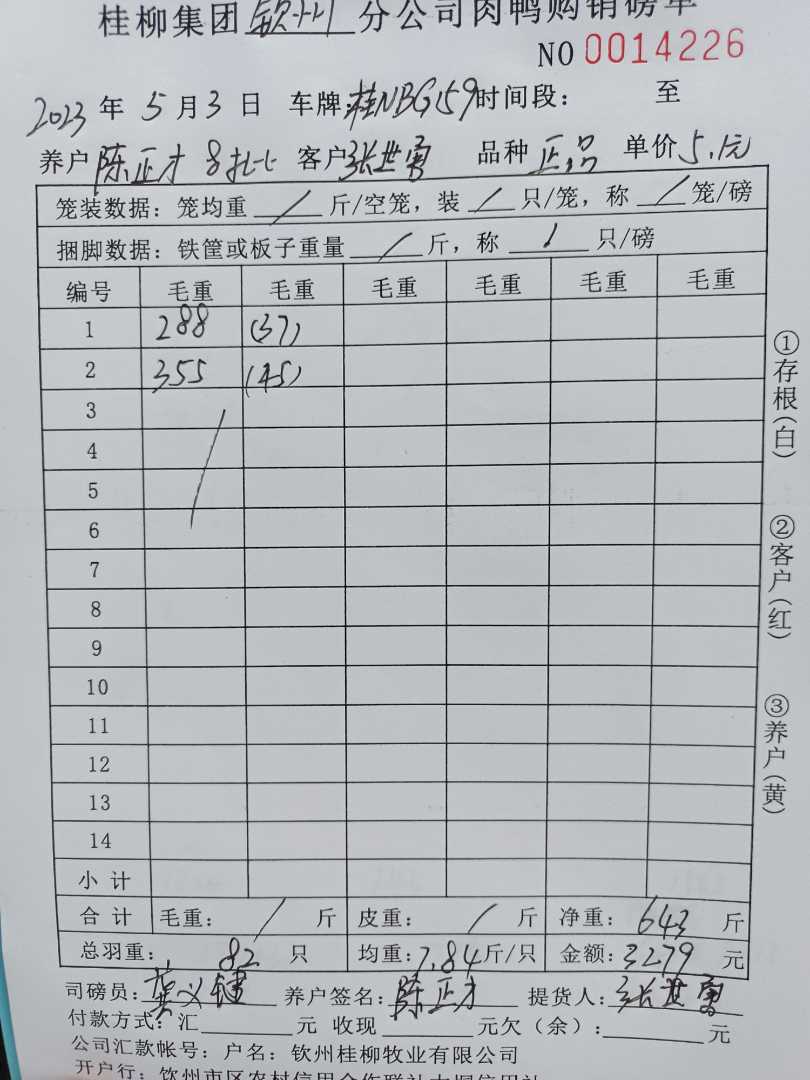 桂柳集团 钦州 分公司肉鸭购销磅单
NO 0014226
2023 年 5 月 3 日 车牌:桂NBG159 时间段: 至
养户 陈正才 客户 张世勇 品种 正品 单价 5.1元
笼装数据:笼均重 / 斤/空笼,装 / 只/笼,称 / 笼/磅
捆脚数据:铁筐或板子重量 / 斤,称 / 只/磅
编号 毛重 毛重 毛重 毛重 毛重 毛重
1 288 (37)
2 355 (45)
3
4
5
6
7
8
9
10
11
12
13
14
小计
合计 毛重: / 斤 皮重: / 斤 净重: 643 斤
总羽重: 82 只 均重: 7.84 斤/只 金额: 3279 元
司磅员: 养户签名: 陈正才 提货人: 张世勇
付款方式:汇 元 收现 元欠(余): 元
公司汇款帐号:户名:钦州桂柳牧业有限公司
开户行:钦州市区农村信用合作联社大垌信用社
①存根(白)
②客户(红)
③养户(黄)